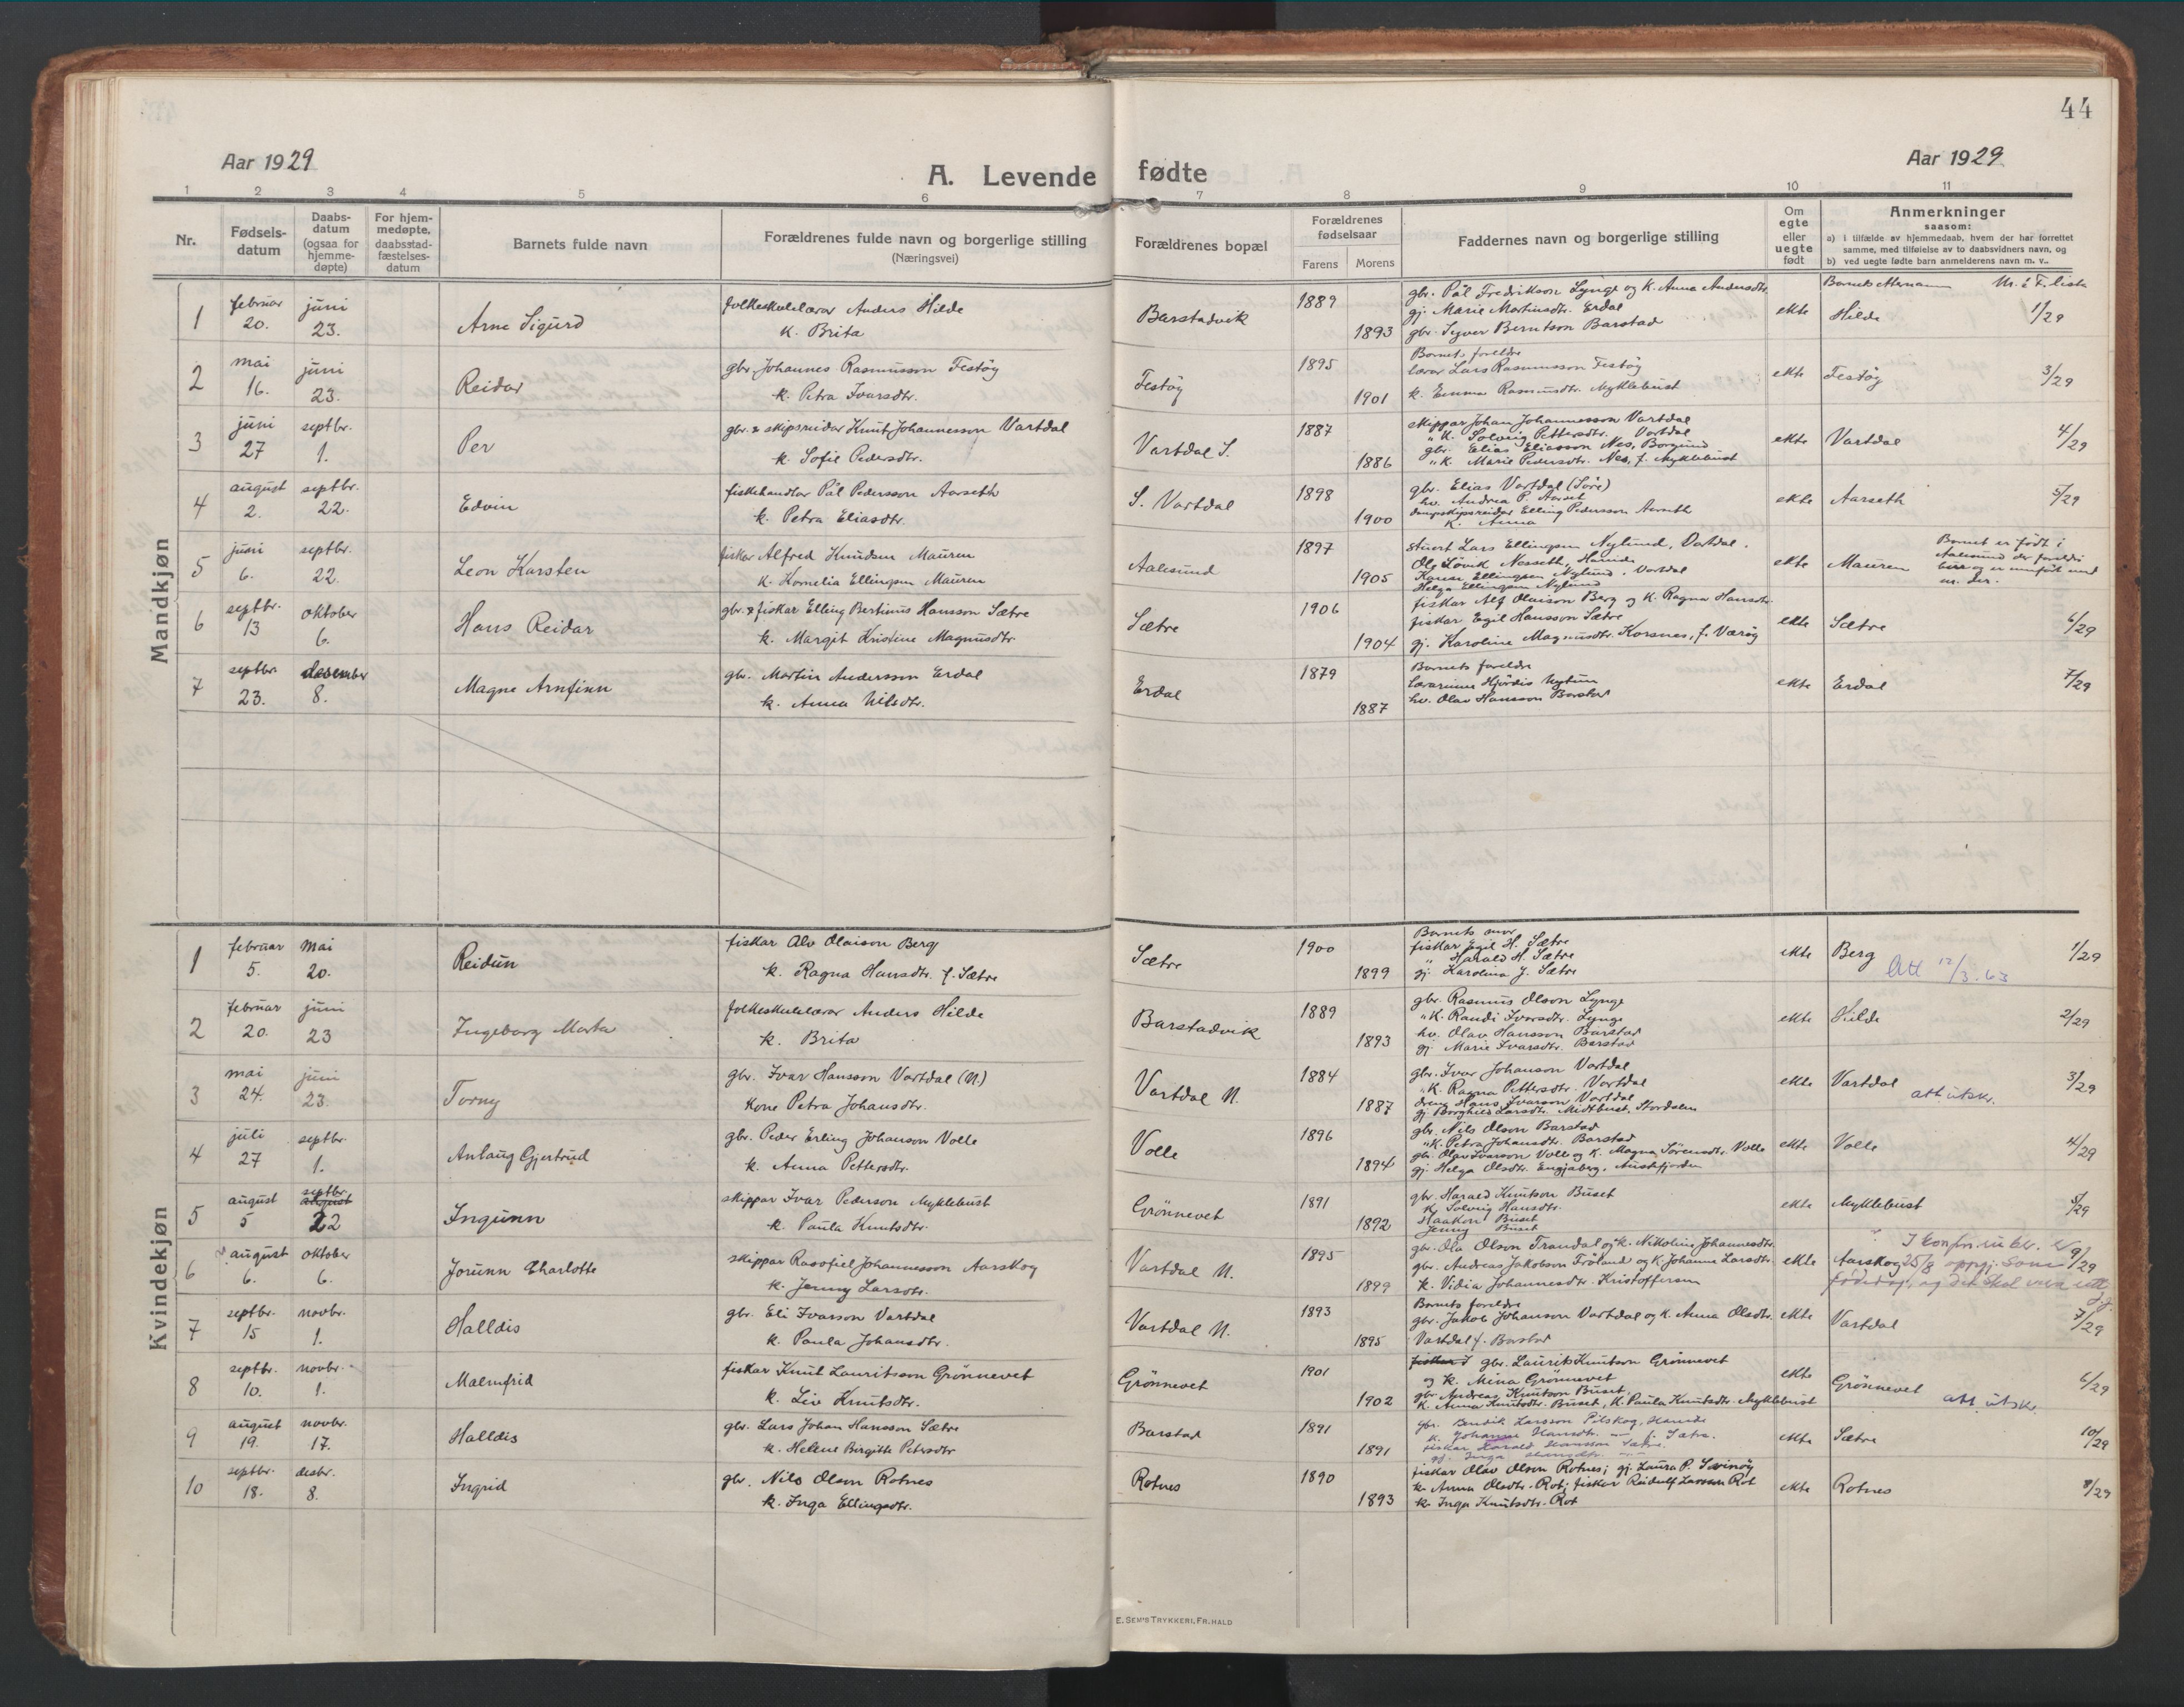 44
Aar 1929
Aar 1929
A. Levende fødte
1 2 3 4 5 6 7 8 9 10 11
Nr.
Fødsels-datum
Daabs-datum (ogsaa for hjemme-døpte)
For hjem-medøpte, daabsstad-fæstelses-datum
Barnets fulde navn
Forældrenes fulde navn og borgerlige stilling (Næringsvei)
Forældrenes bopæl
Forældrenes fødselsaar
Farens Morens
Faddernes navn og borgerlige stilling
Om egte eller uegte født
Anmerkninger
saasom:
a) i tilfælde av hjemmedaab, hvem der har forrettet samme, med tilføielse av to daabsvidners navn, og
b) ved uegte fødte barn anmelderens navn m. v..
Mandkjøn
1 februar 20. juni 23. Arne Sigurd
folkeskulelærar Anders Hilde
k. Brita
Barstadvik 1889 1893
gbr. Pål Fredrikson Lynge og k. Anna Andersdtr.
gj. Marie Martinsdtr. Erdal
gbr. Syver Berntson Barstad
ekte Barnets etternamn Hilde 1/29
2 mai 16. juni 23. Reidar
gbr. Johannes Rasmusson Festöy
k. Petra Ivarsdtr.
Festöy 1895 1901
Barnets foreldre
lærar Lars Rasmusson Festöy
k. Emma Rasmusdtr. Myklebust
ekte Festöy 3/29
3 juni 27 septbr. 1. Per
gbr. & skipsreidar Knut Johannesson Vartdal
k. Sofie Pedersdtr.
Vartdal S. 1887 1886
skippar Johan Johannesson Vartdal
" k. Solveig Pettersdtr. Vartdal
gbr. Elias Eliasson Nes, Borgund
" k. Marie Pedersdtr. Nes, f. Myklebust
ekte Vartdal 4/29
4 august 2. septbr. 22. Edvin
fiskehandlar Pål Pedersson Aarseth
k. Petra Eliasdtr.
S. Vartdal 1898 1900
gbr. Elias Vartdal (Söre)
hv. Andrea P. Aarset
dampskipsreidar Elling Pedersson Aarseth
k. Anna
ekte Aarseth 5/29
5 juni 6. septbr. 22. Leon Karsten
fiskar Alfred Knudsen Mauren
k. Kornelia Ellingsen Mauren
Aalesund 1897 1905
stuert Lars Ellingsen Nylund, Vartdal.
Olg Lövik Nesseth, Hareide
Hansi Ellingsen Nylund, Vartdal
Helga Ellingsen Nylund
ekte Mauren
Barnet er født i Aalesund der foreldri bur og er innført med nr. der.
6 septbr. 13 oktober 6. Hans Reidar
gbr. & fiskar Elling Bertinus Hansson Sætre
k. Margit Kristine Magnusdtr
Sætre 1906 1904
fiskar Alf Olaison Berg og k. Ragna Hansdtr.
fiskar Egil Hansson Sætre
gj. Karoline Magnusdtr. Korsnes, f. Værøy
ekte Sætre 6/29
7 septbr. 23. desember 8. Magne Arnfinn
gbr. Martin Andersson Erdal
k. Anna Nilsdtr.
Erdal 1879 1887
Barnets foreldre
lærarinne Hjördis Nytun
hv. Olav Hansson Barstad
ekte Erdal 7/29
Kvindekjøn
1 februar 5. mai 20. Reidun
fiskar Alv Olaison Berg
k. Ragna Hansdtr. f. Sætre
Sætre 1900 1899
Barnets mor
fiskar Egil H. Sætre
" Harald H. Sætre
gj. Karolina J. Sætre
ekte Berg 1/29
Att 12/3.63
2 februar 20. juni 23 Ingeborg Marta
folkeskulelærar Anders Hilde
k. Brita
Barstadvik 1889 1893
gbr. Rasmus Olson Lynge
" k. Randi Ivarsdtr. Lynge
hv. Olav Hansson Barstad
gj. Marie Ivarsdtr. Barstad
ekte Hilde 2/29
3 mai 24. juni 23. Torny
gbr. Ivar Hansson Vartdal (N.)
kone Petra Johansdtr.
Vartdal N. 1884 1887
gbr. Ivar Johanson Vartdal
" k. Ragna Pettersdtr. Vartdal
dreng Hans Ivarson Vartdal
gj. Borghild Larsdtr. Midtbust, Stordalen
ekte Vartdal 3/29
att utskr.
4 juli 27 septbr. 1. Anlaug Gjertrud
gbr. Peder Erling Johanson Volle
k. Anna Pettersdtr.
Volle 1896 1894
gbr. Nils Olson Barstad
" k. Petra Johansdtr. Barstad
gbr. Olav Ivarson Volle og k. Magna Sörensdtr. Volle
gj. Helga Olsdtr. Engjaberg, Austefjorden
ekte Volle 4/29
5 august 5 septbr. august 22 Ingunn
skippar Ivar Pederson Myklebust
k. Paula Knutsdtr.
Grönnevet 1891 1892
gbr. Harald Knutson Buset
k. Solveig Hansdtr.
Haakon Buset
Jenny Buset
ekte Myklebust 5/29
6 august 6. oktober 6. Jorunn Charlotte
skippar Rasofiel Johannesson Aarskog
k. Jenny Larsdtr.
Vartdal N. 1895 1899
gbr. Ola Olson Trandal og k. Nikoline Johannesdtr.
gbr. Andreas Jakobson Fröland og k. Johanne Larsdtr.
k. Vidia Johannesdtr. Kristoffersen
ekte Aarskog 9/29
I konfir. er 25/8 oppgj. som fødedag, og det skal vera rett
7 septbr. 15 novbr. 1. Halldis
gbr. Eli Ivarsson Vartdal
k. Paula Johansdtr.
Vartdal N. 1893 1895
Barnets foreldre
gbr. Jakob Johanson Vartdal og k. Anna Olsdtr.
Vartdal f. Barstad
ekte Vartdal 7/29
8 septbr. 10. novbr. 1. Malmfrid
fiskar Knut Lauritsson Grönnevet
k. Liv Knutsdtr.
Grönnevet 1901 1902
fiskar gbr. Laurits Knutson Grönnevet
og k. Mina Grönnevet
gbr. Andreas Knutson Buset
k. Anna Knutsdtr. Buset, k. Paula Knutsdtr. Myklebust
ekte Grönnevet 6/29
att utskr.
9 august 19. novbr. 17. Halldis
gbr. Lars Johan Hansson Sætre
k. Helene Birgitte Petersdtr
Barstad 1891 1891
gbr. Bendik Larsson Pilskog, Hareide
k. Johanne Hansdtr. — f. Sætre.
fiskar Harald Hansson Sætre
gj. Inga Hansdtr.
ekte Sætre 10/29
10 septbr. 18. desbr. 8. Ingrid
gbr. Nils Olson Rotnes
k. Inga Ellingsdtr.
Rotnes 1890 1893
fiskar Olav Olson Rotnes; gj. Laura P. Sævinöy
k. Anna Olsdtr. Rot; fiskar Reidulf Larsson Rot
k. Inga Knutsdtr. Rot
ekte Rotnes 8/29
E. Sem's Trykkeri, Fr.hald